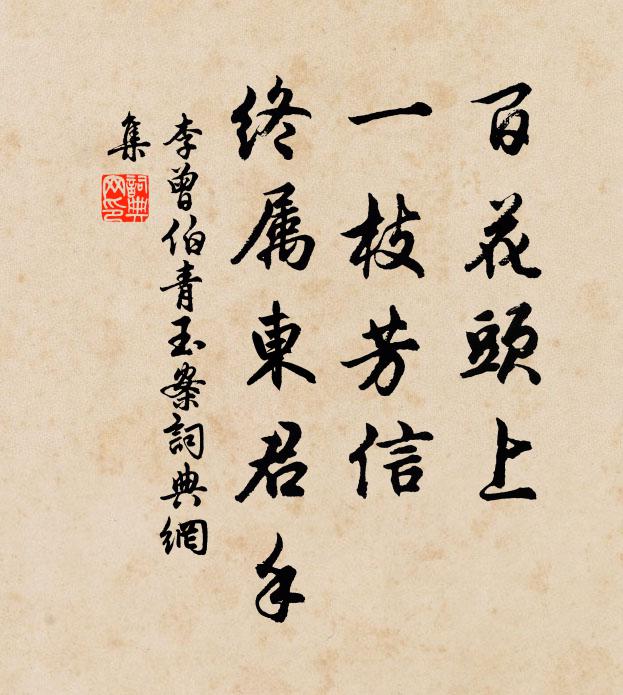 百花頭上
一枝芳信
終属東君手
李曾伯青玉案詞典網
集
詞典網印